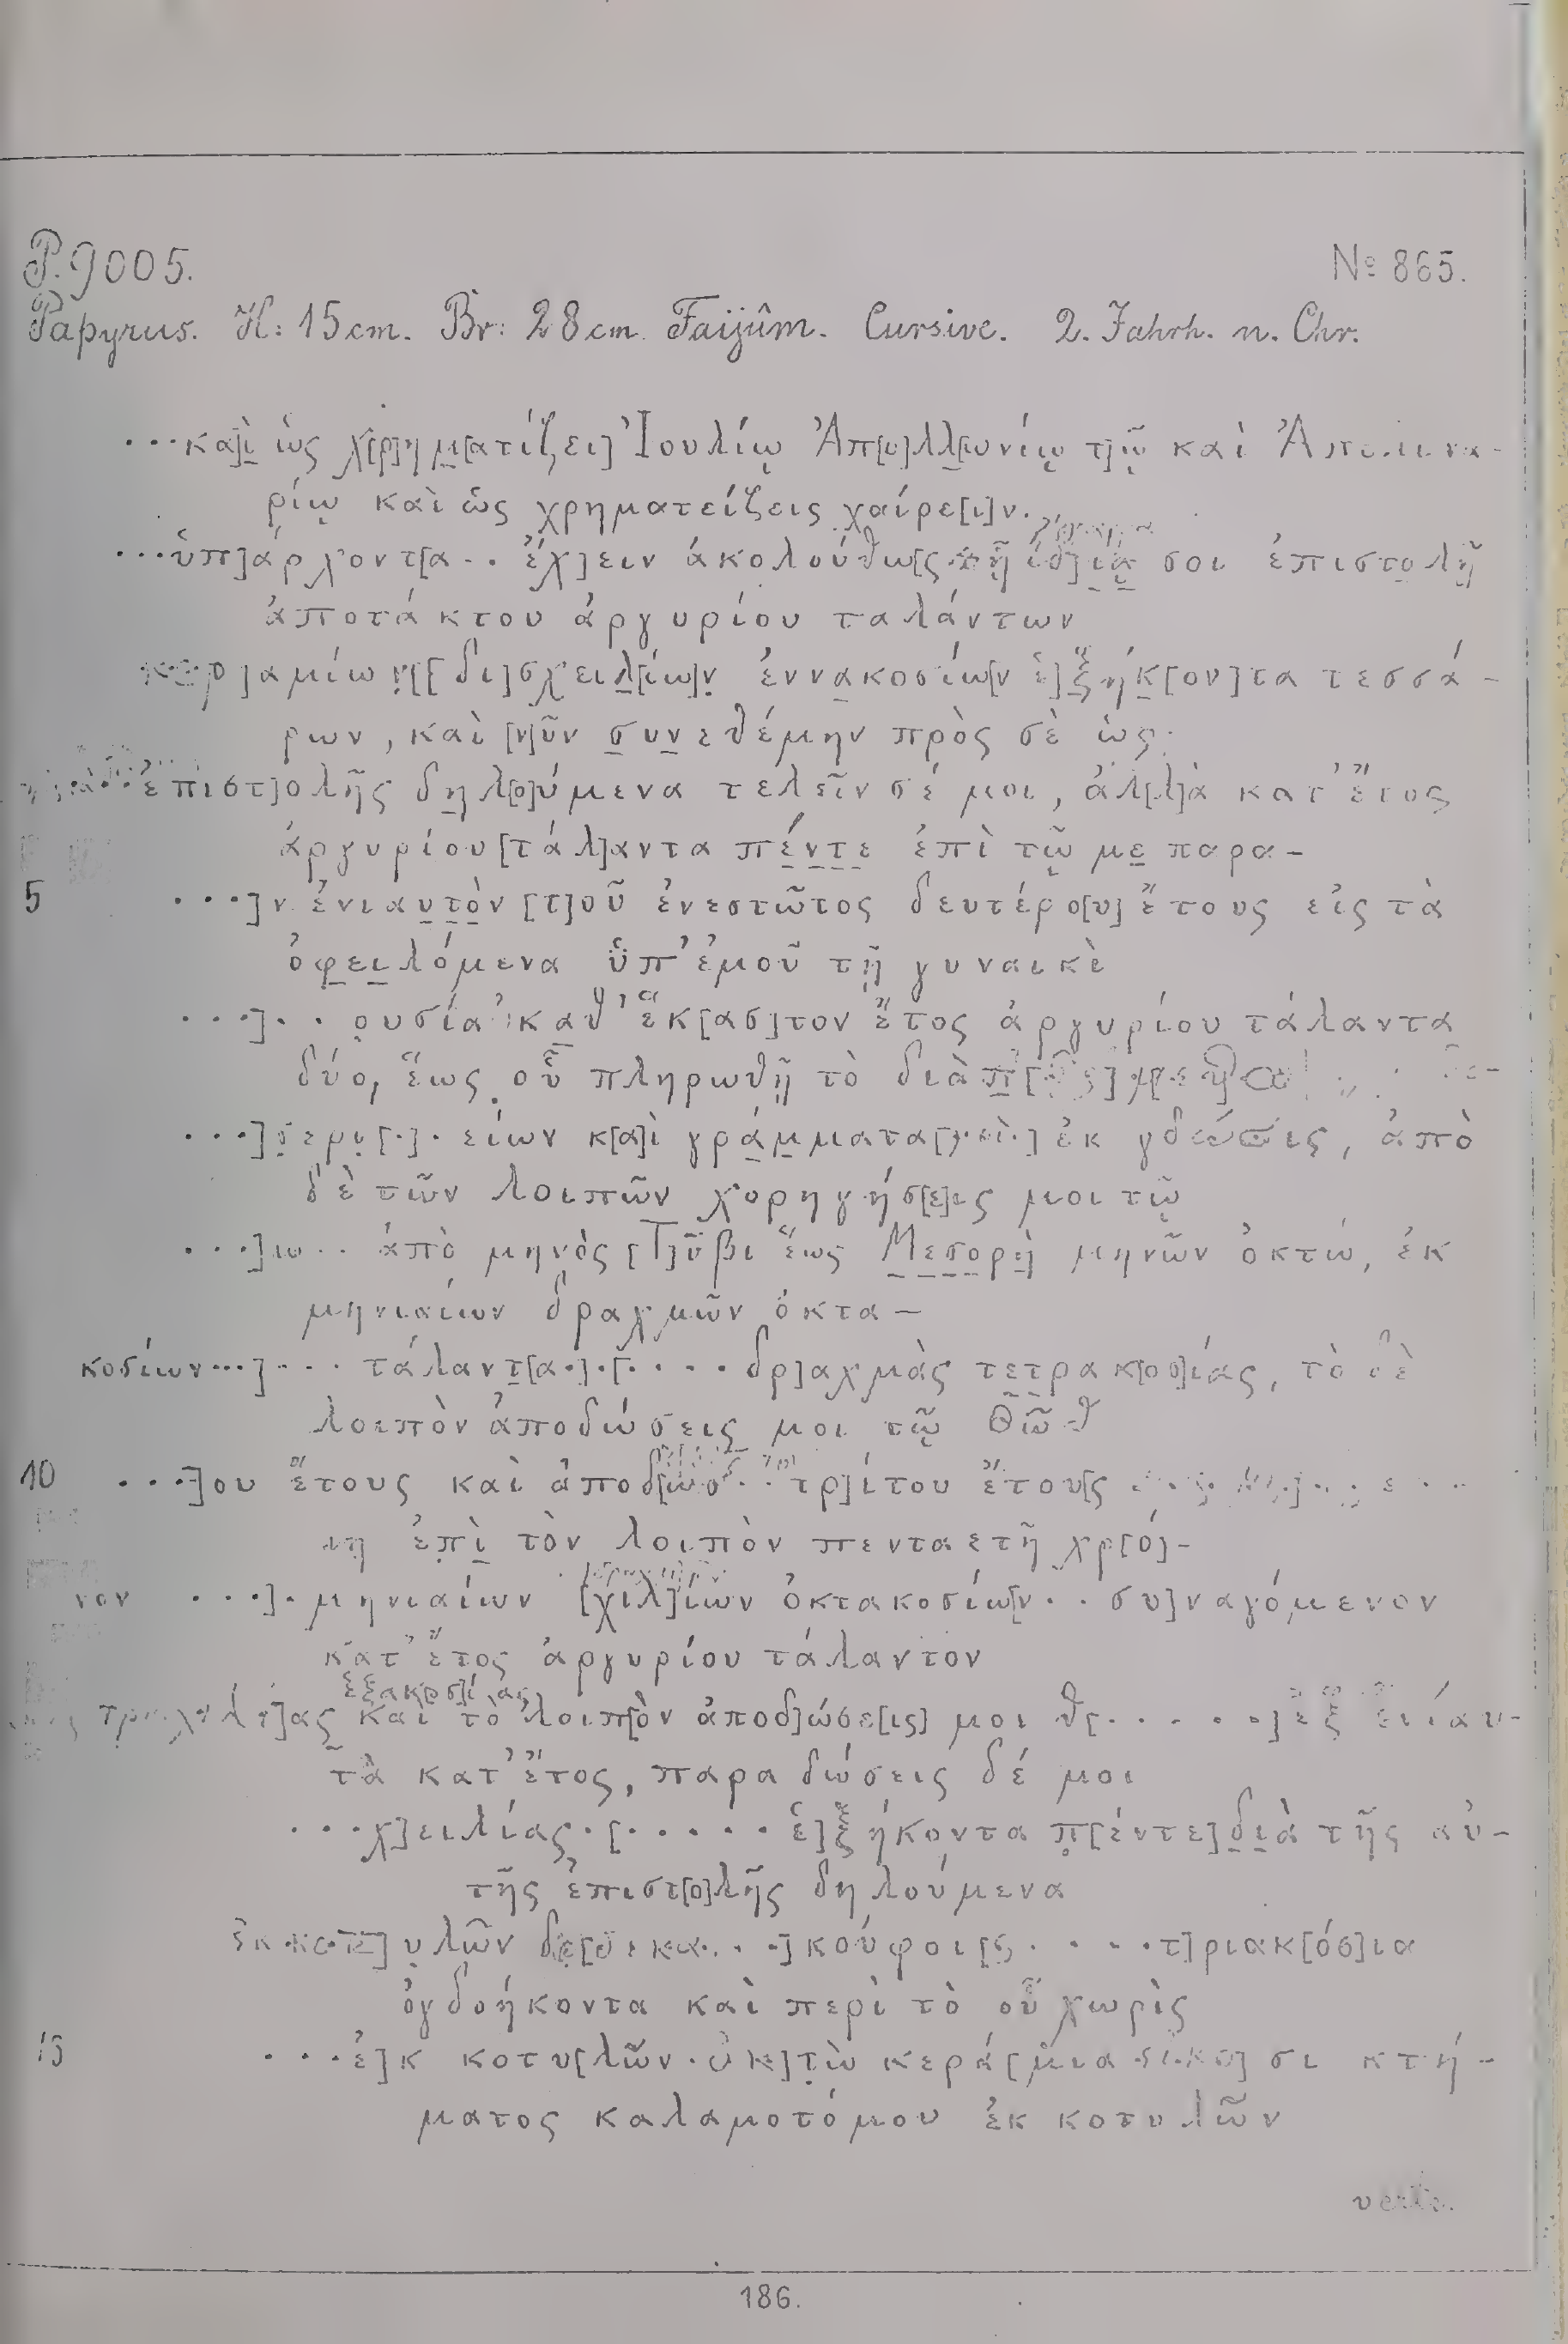 P. 9005. № 865.
Papyrus. H: 15 cm. Br: 28 cm. Faijûm. Cursive. 2. Jahrh. n. Chr.
···κα]ὶ ὡς χ[ρ]ημ[ατίζει] Ἰουλίῳ Ἀπ[ο]λλ[ωνίῳ τ]ῷ καὶ
ρίῳ καὶ ὡς χρηματείζεις χαίρε[ι]ν.
···ὑπ]άρχοντ[α·· ἔχ]ειν ἀκολούθω[ς τῇ ἰδ]ίᾳ σοι ἐπιστολῇ
ἀποτάκτου ἀργυρίου ταλάντων
κερ]αμίων[[δι]σχειλ[ίω]ν ἐννακοσίω[ν ἑ]ξήκ[ον]τα τεσσά-
ρων, καὶ [ν]ῦν συνεθέμην πρὸς σὲ ὡς
ἐπιστ]ολῆς δηλ[ο]ύμενα τελεῖν σέ μοι, ἀλ[λ]ὰ κατ' ἔτος
ἀργυρίου [τάλ]αντα πέντε ἐπὶ τῷ με παρα-
5 ···]ν ἐνιαυτὸν [τ]οῦ ἐνεστῶτος δευτέρο[υ] ἔτους εἰς τὰ
ὀφειλόμενα ὑπ' ἐμοῦ τῇ γυναικὲ
···]·· ουσία καθ' ἕκ[ασ]τον ἔτος ἀργυρίου τάλαντα
δύο, ἕως οὗ πληρωθῇ τὸ διὰ
···]σερι[·]· είων κ[α]ὶ γράμματα ἐκ ἀπὸ
δὲ τῶν λοιπῶν χορηγήσ[ε]ις μοι τῷ
···]ιω·· ἀπὸ μηνὸς [Τ]ῦβι ἕως Μεσορὴ μηνῶν ὀκτώ, ἐκ
μηνιαίων δραχμῶν ὀκτα-
κοσίων···]··· τάλαντ[α·]·[···· δρ]αχμὰς τετρακ[οσ]ίας, τὸ δὲ
λοιπὸν ἀποδώσεις μοι τῷ Θῶθ
10 ···]ου ἔτους καὶ ἀποδ[ώσ·· τρ]ίτου ἔτου[ς
ἐπὶ τὸν λοιπὸν πενταετῆ χρ[ό]-
νον ···]· μηνιαίων [χιλ]ίων ὀκτακοσίω[ν·· συ]ναγόμενον
κατ' ἔτος ἀργυρίου τάλαντον
ἑξακοσίας
καὶ τὸ λοιπ[ὸν ἀποδ]ώσε[ις] μοι θ[·····]εξ ἐνίαυ-
τα κατ' ἔτος, παραδώσεις δέ μοι
···χ]ειλίας·[····· ἑ]ξήκοντα π[έντε] διὰ τῆς αὐ-
τῆς ἐπιστ[ο]λῆς δηλούμενα
ἐκ κοτ]υλῶν δε[δεκα···] κούφοι[ς ····τ]ριακ[όσ]ια
ὀγδοήκοντα καὶ περὶ τὸ οὗ χωρὶς
15 ···ἐ]κ κοτυ[λῶν ὀκ]τὼ κερά[μια εἴκο]σι κτή-
ματος καλαμοτόμου ἐκ κοτυλῶν
verte.
186.